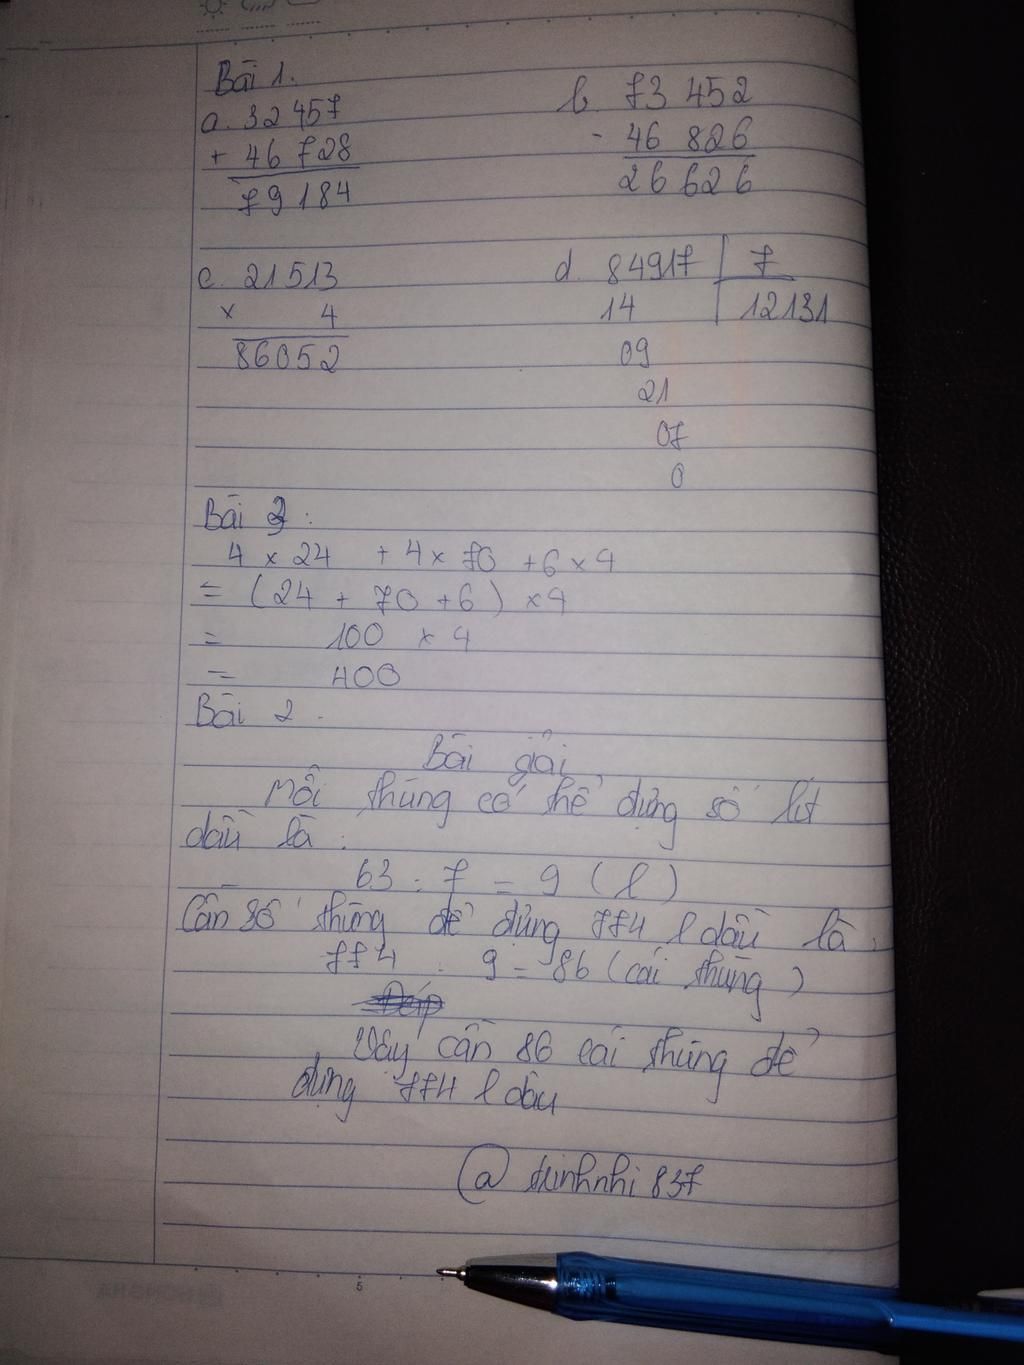 Bài 1.
a. 32 457
+ 46 728
79 184
b. 73 452
- 46 826
26 626
c. 21513
x 4
86052
d. 84917 7
14 12131
09
21
07
0
Bài 3:
4 x 24 + 4 x 70 + 6 x 4
= (24 + 70 + 6) x 4
= 100 x 4
= 400
Bài 2.
Bài giải
Mỗi thùng có thể đựng số lít
dầu là:
63 : 7 = 9 (l)
Cần số thùng để đựng 774 l dầu là:
774 : 9 = 86 (cái thùng)
Vậy cần 86 cái thùng để
đựng 774 l dầu
@ 837
5